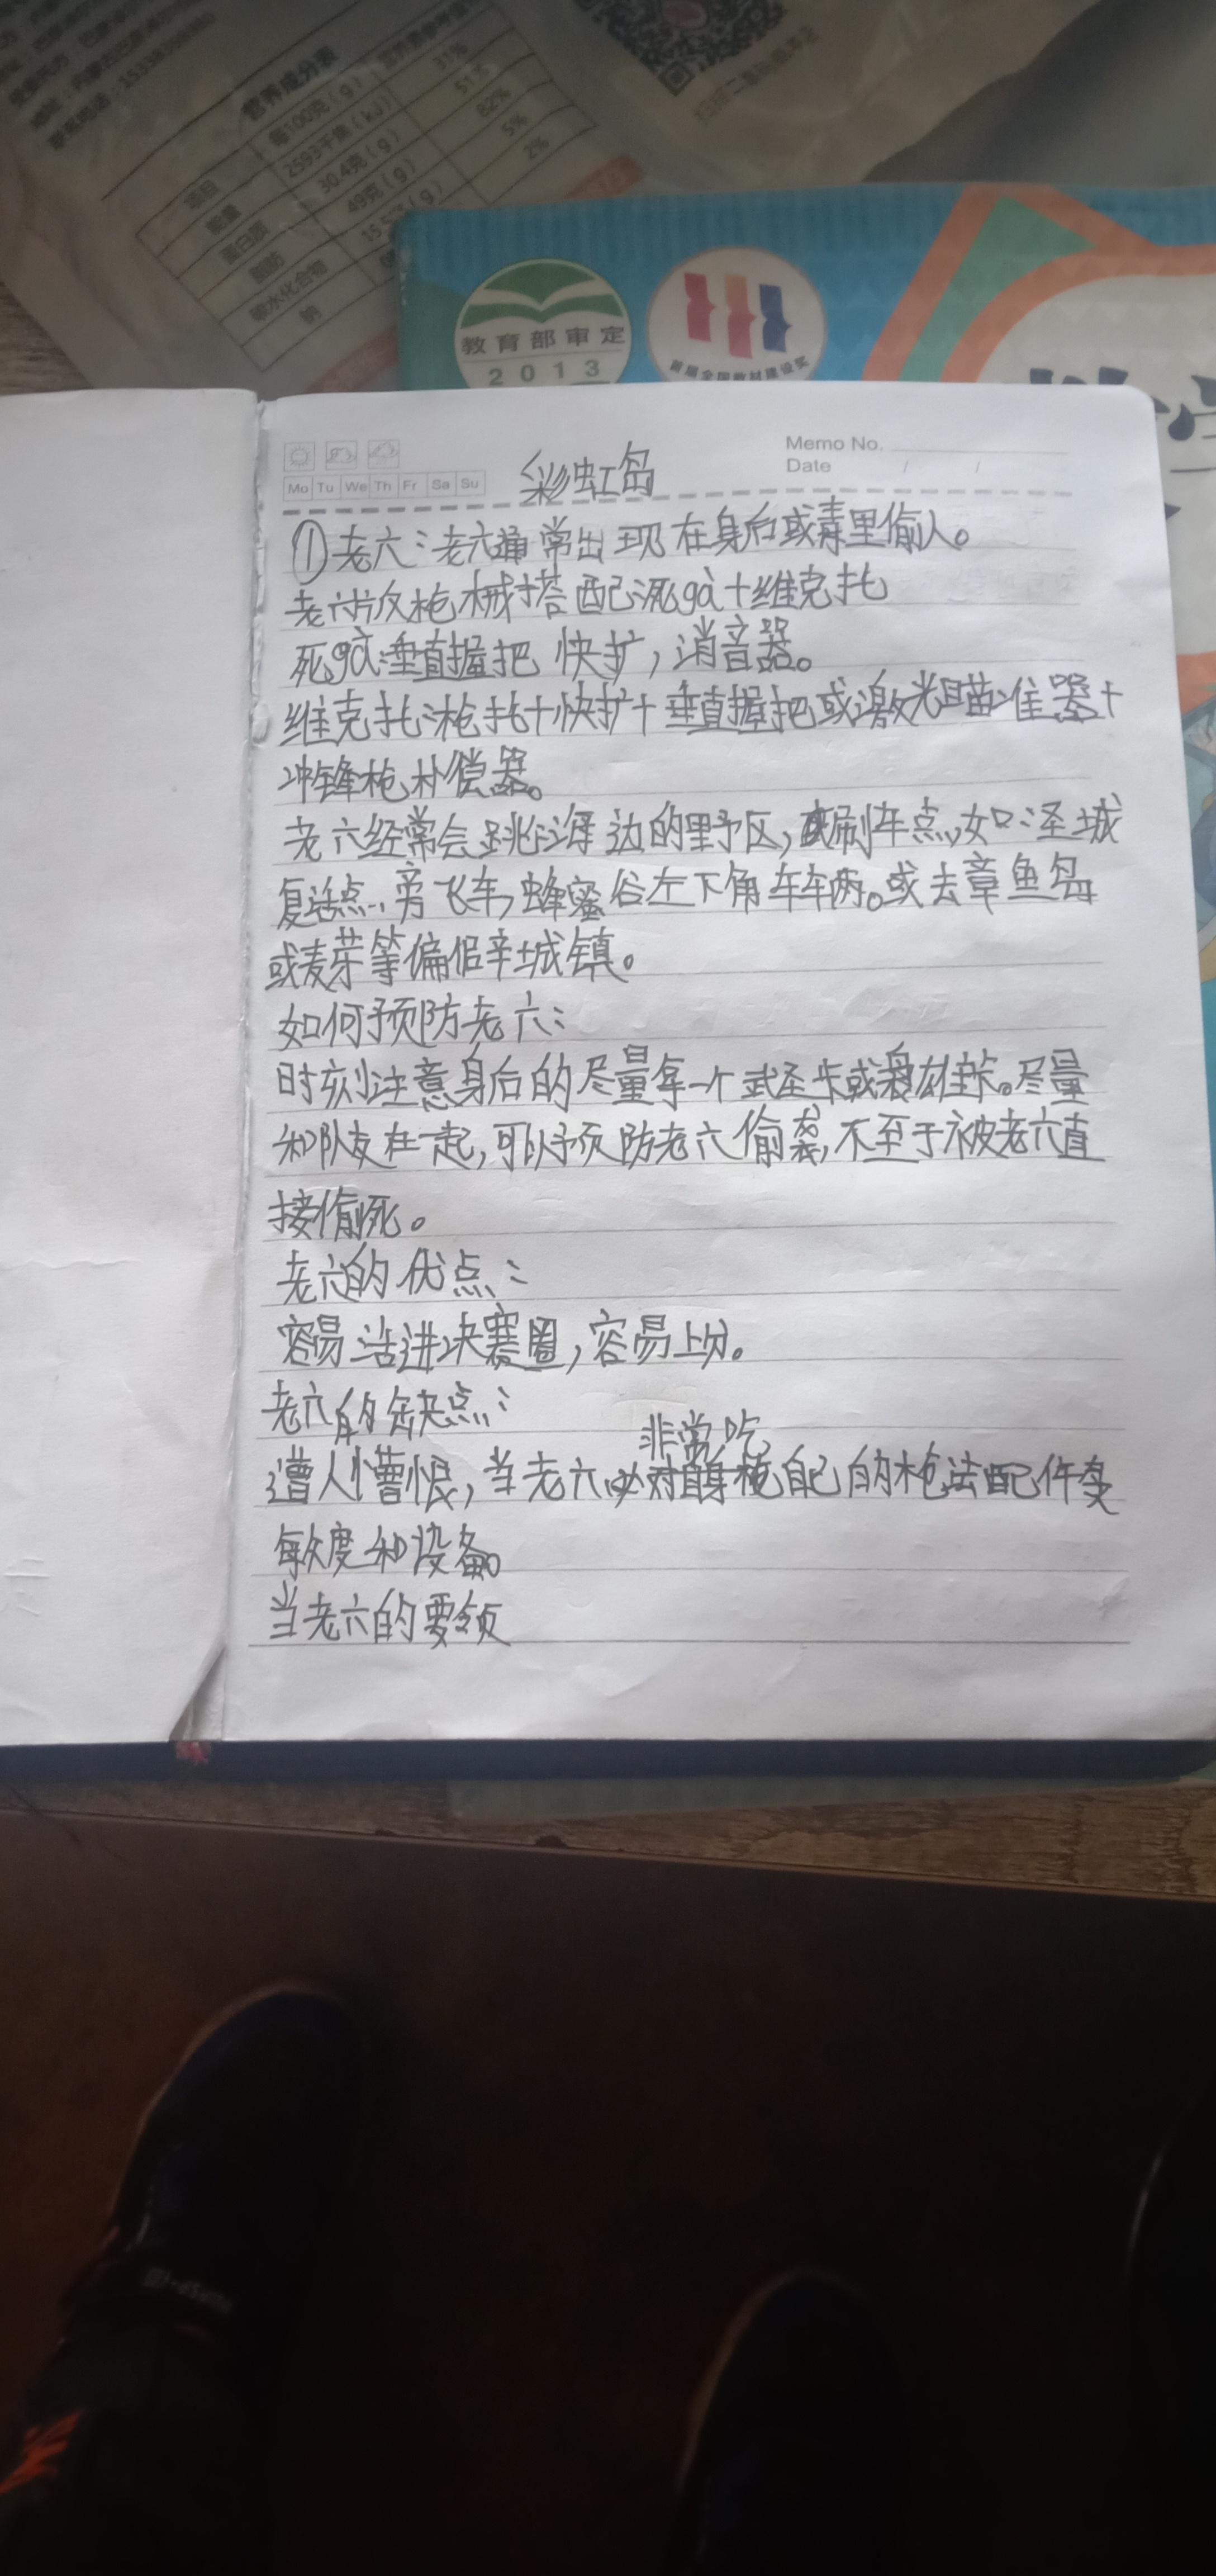 营养成分表
项目
每100克(g)
能量
2593千焦(kJ)
31%
蛋白质
30.4克(g)
51%
脂肪
49克(g)
82%
碳水化合物
5%
钠
2%
教育部审定
2013
首届全国教材建设奖
Memo No.
Date / /
Mo Tu We Th Fr Sa Su
彩虹岛
①老六：老六通常出现在身后或毒里偷人。
老六枪械搭配：死gà+维克托
死gà：垂直握把 快扩，消音器。
维克托：枪托+快扩+垂直握把或激光瞄准器+
冲锋枪补偿器。
老六经常会跳海边的野区，刷车点，如：圣城
复活点旁飞车，蜂蜜谷左下角车车两。或去章鱼岛
或麦芽等偏僻城镇。
如何预防老六：
时刻注意身后的尽量拿一个武圣卡或雄卡。尽量
和队友在一起，可以预防老六偷袭，不至于被老六直
接偷死。
老六的优点：
容易活进决赛圈，容易上分。
老六的缺点：
非常吃
遭人憎恨，当老六对自己的枪法配件灵
敏度和设备。
当老六的要领